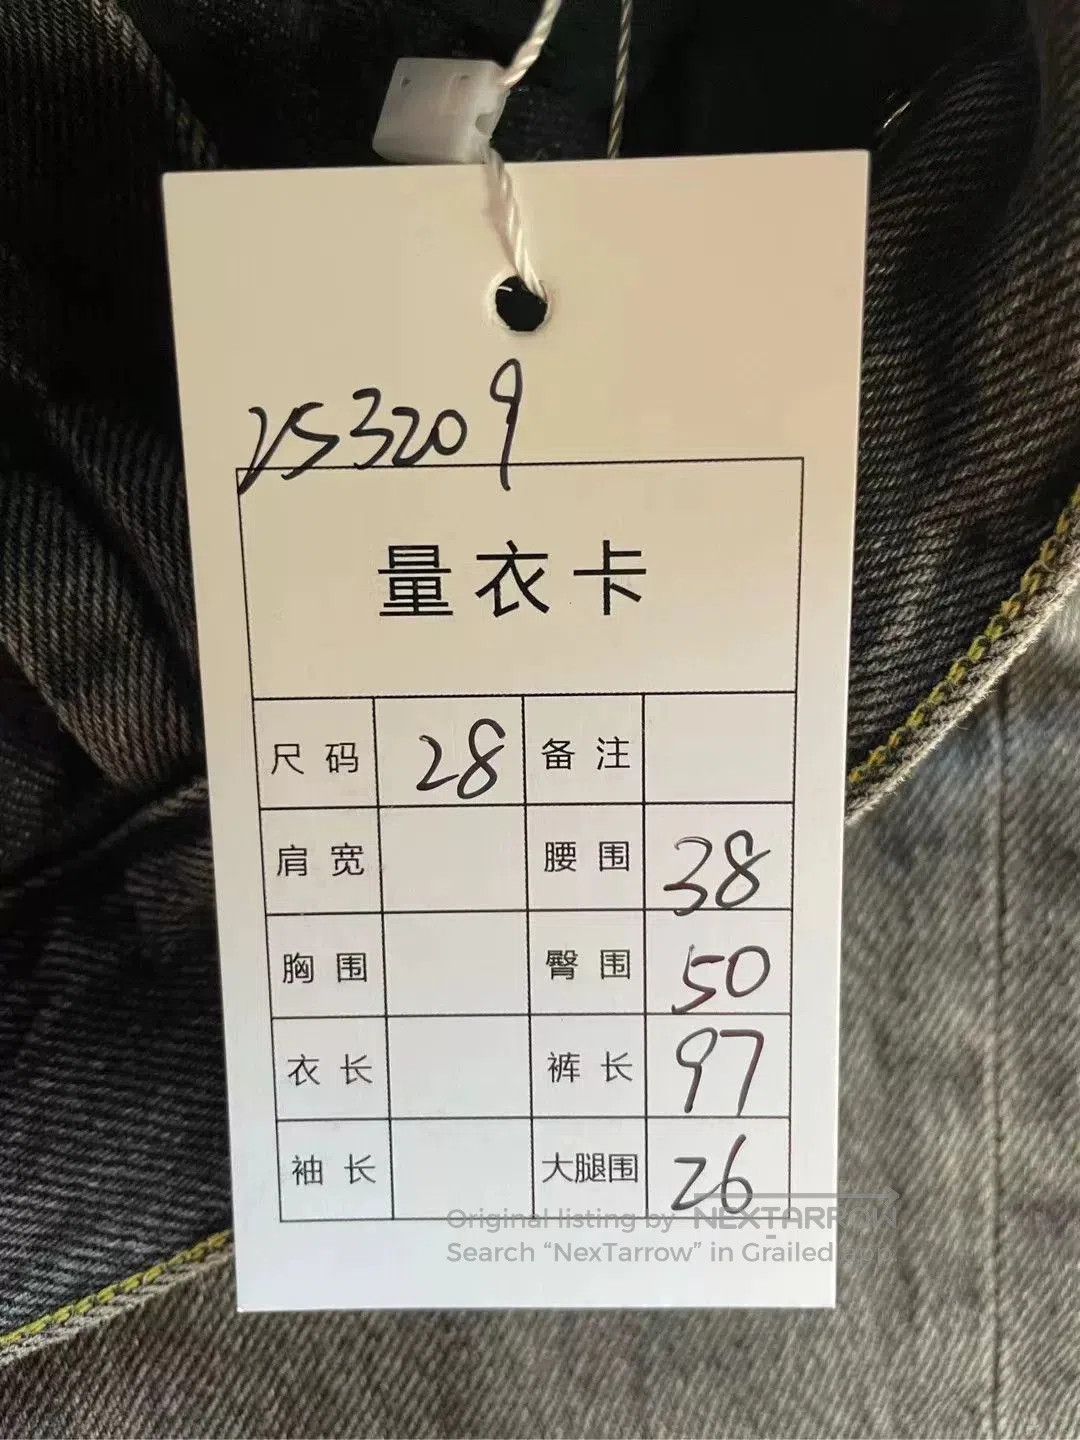 253209
量衣卡
尺码 28 备注
肩宽 腰围 38
胸围 臀围 50
衣长 裤长 97
袖长 大腿围 26
Original listing by NEXTARROW
Search “NexTarrow” in Grailed app